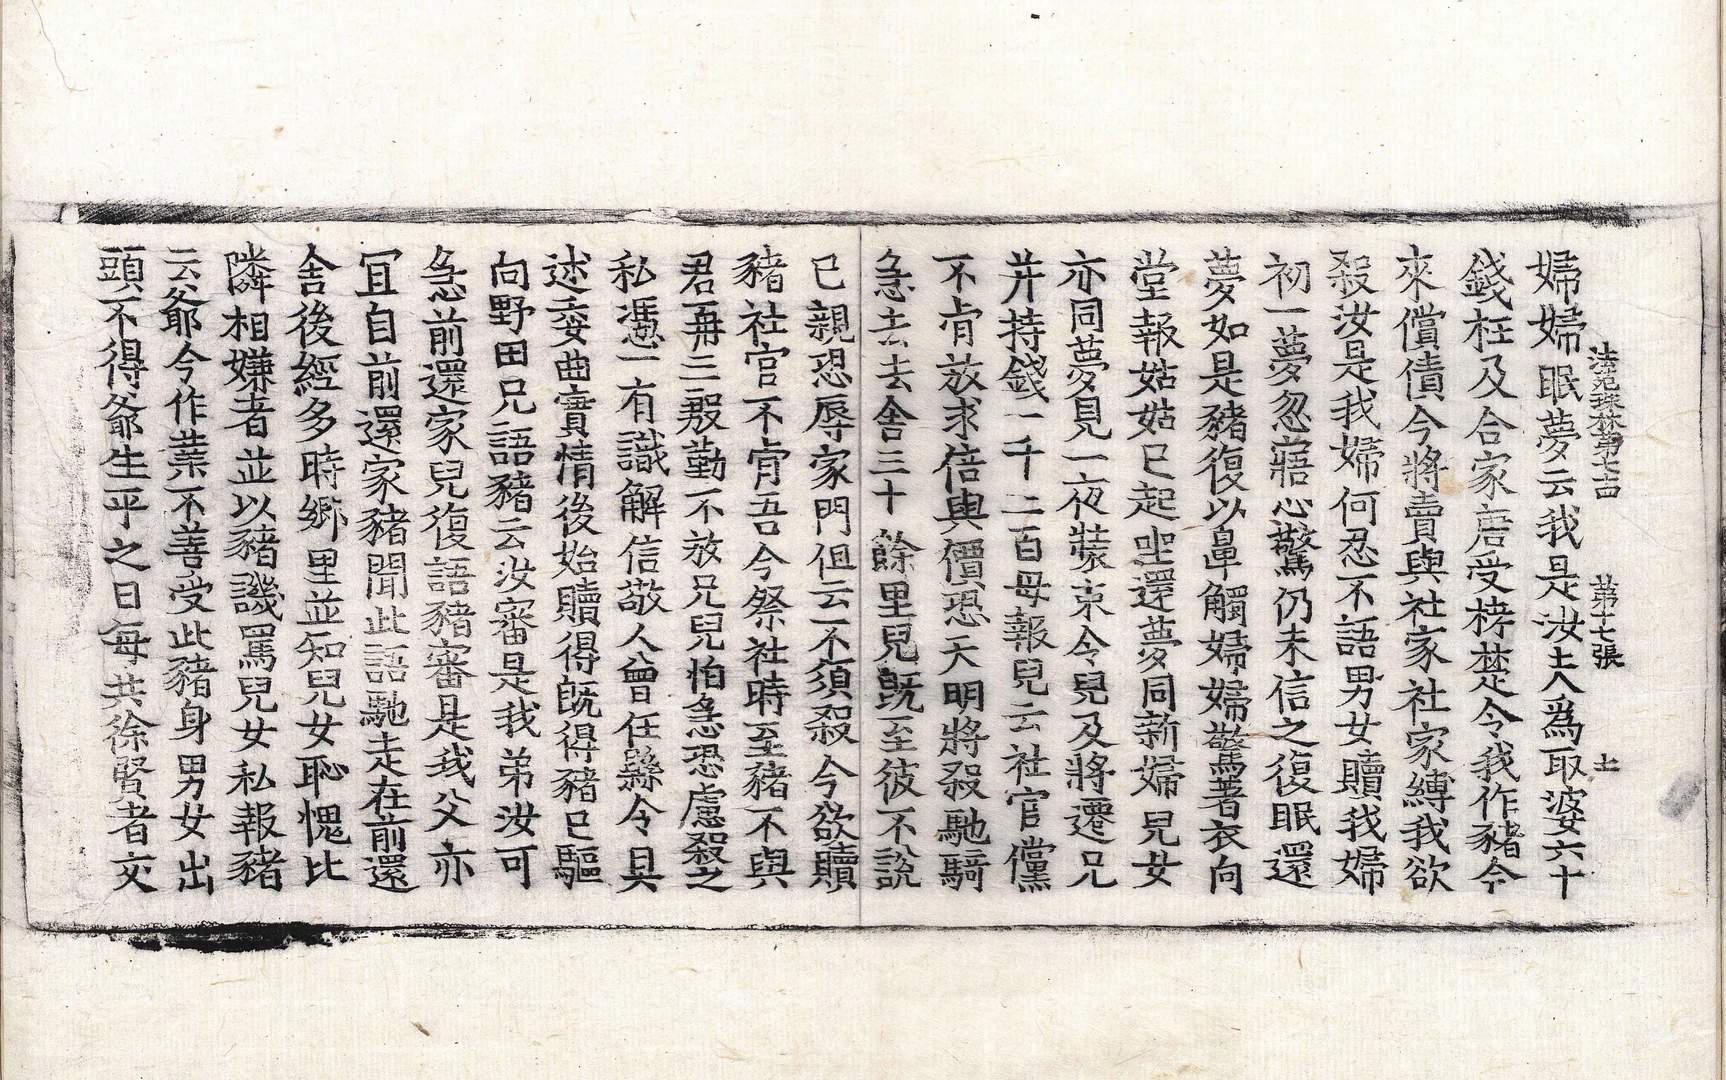 婦婦眠夢云我是汝夫爲取婆六十
法苑珠林第七十 第十七張 土
錢枉及合家唐受拷楚令我作豬今
來償債今將賣與社家社家縛我欲
殺汝是我婦何忍不語男女贖我婦
初一夢忽寤心驚仍未信之復眠還
夢如是豬復以鼻觸婦婦驚著衣向
堂報姑姑已起坐還夢同新婦兒女
亦同夢見一夜裝束令兒及將遷兄
并持錢一千二百母報兒云社官儻
不肯放求倍與價恐天明將殺馳騎
急去去舍三十餘里兒旣至彼不說
已親恐辱家門但云不須殺今欲贖
豬社官不肯吾今祭社時至豬不與
君再三殷勤不放兄兒怕急恐慮殺之
私憑一有識解信敬人曾任縣令具
述委曲實情後始贖得旣得豬已驅
向野田兄語豬云汝審是我弟汝可
急前還家兒復語豬審是我父亦
冝自前還家豬聞此語馳走在前還
舍後經多時鄉里並知兒女恥愧比
隣相嫌者並以豬譏罵兒女私報豬
云爺今作業不善受此豬身男女出
頭不得爺生平之日每共徐賢者交